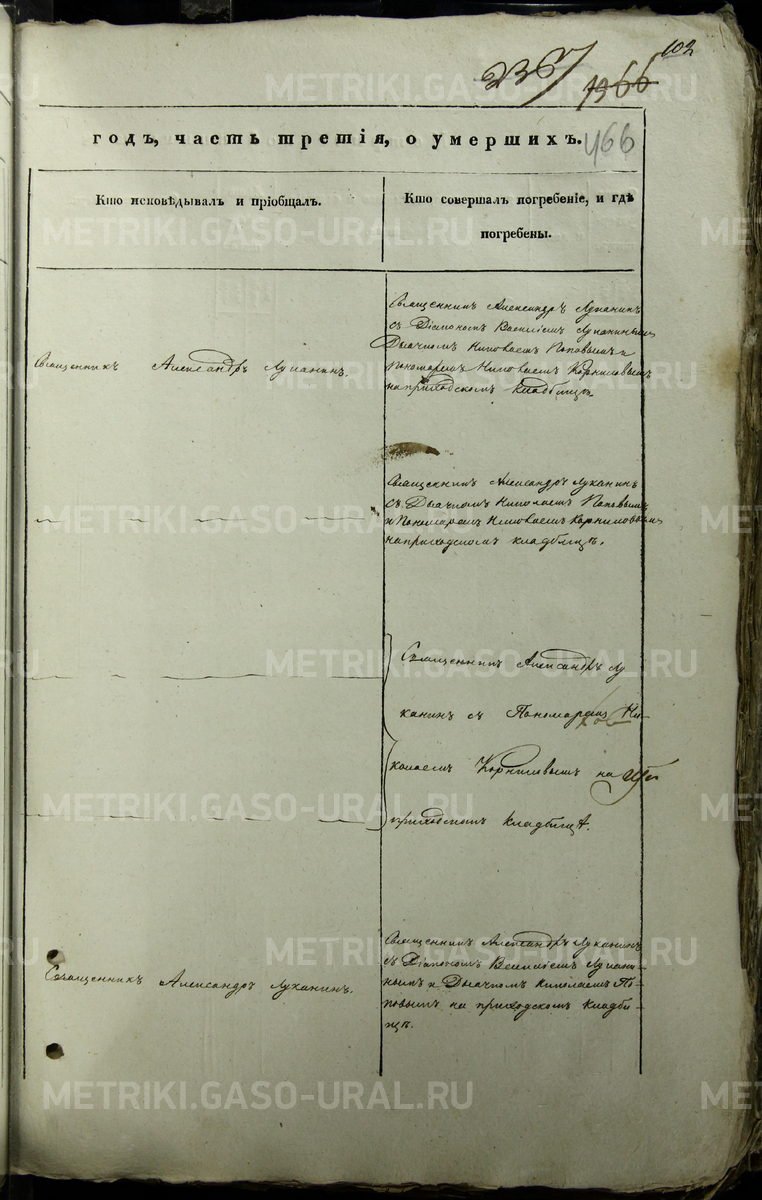 102
2367
1366
годъ, часть третія, о умершихъ.
466
Кто исповѣдывалъ и пріобщалъ.
Кто совершалъ погребеніе, и гдѣ
погребены.
Священникъ Александръ Луканинъ.
Священникъ Александръ Луканинъ
съ Діакономъ Василіемъ Луканинымъ
Дьячкомъ Николаемъ Поповымъ и
Пономаремъ Николаемъ Корниловымъ
на приходскомъ кладбищѣ.
Священникъ Александръ Луканинъ
съ Дьячкомъ Николаемъ Поповымъ
и Пономаремъ Николаемъ Корниловымъ
на приходскомъ кладбищѣ.
Священникъ Александръ Лу
канинъ съ Пономаремъ Ни-
колаемъ Корниловымъ на
приходскомъ кладбищѣ.
Священникъ Александръ Луканинъ.
Священникъ Александръ Луканинъ
съ Діакономъ Василіемъ Лукани-
нымъ и Дьячкомъ Николаемъ По-
повымъ на приходскомъ кладби-
щѣ.
METRIKI.GASO-URAL.RU